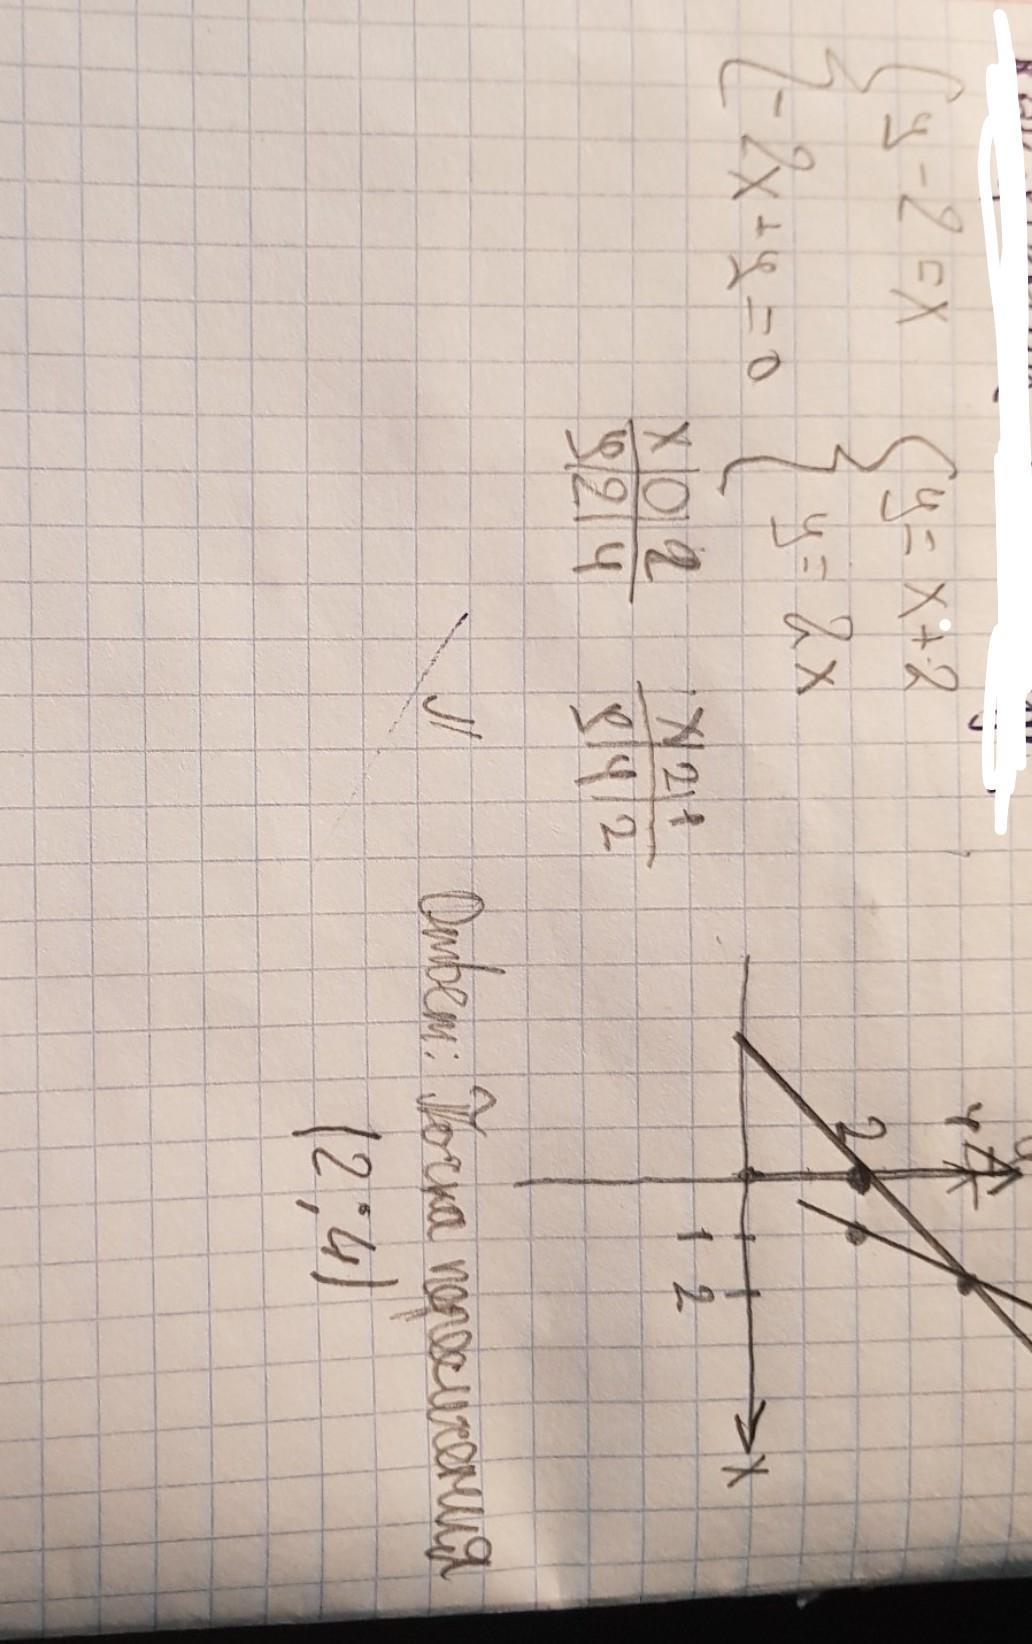 { y - 2 = x
{ - 2x + y = 0
{ y = x + 2
{ y = 2x
x | 0 | 2
y | 2 | 4
x | 2 | 1
y | 4 | 2
4
2
1 2
x
Ответ: Точка пересечения
(2; 4)